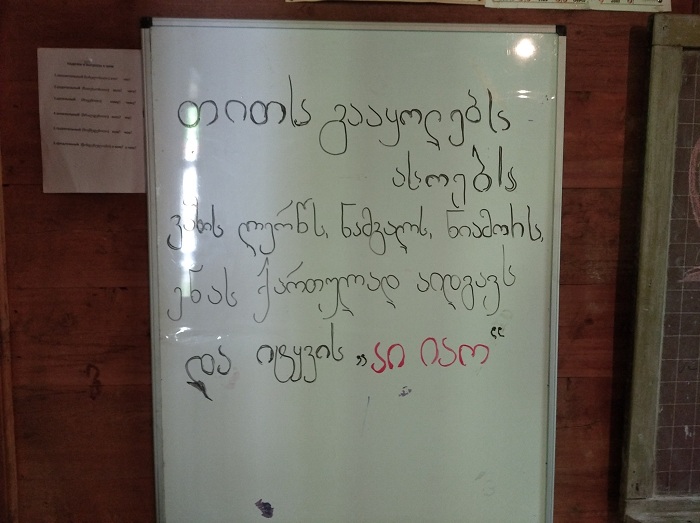 თითს გააყოლებს
ასოებს
ვაზის ლერწს, ნამგალს, ნიამორს,
ენას ქართულად აიდგავს
და იტყვის „აი იაო“